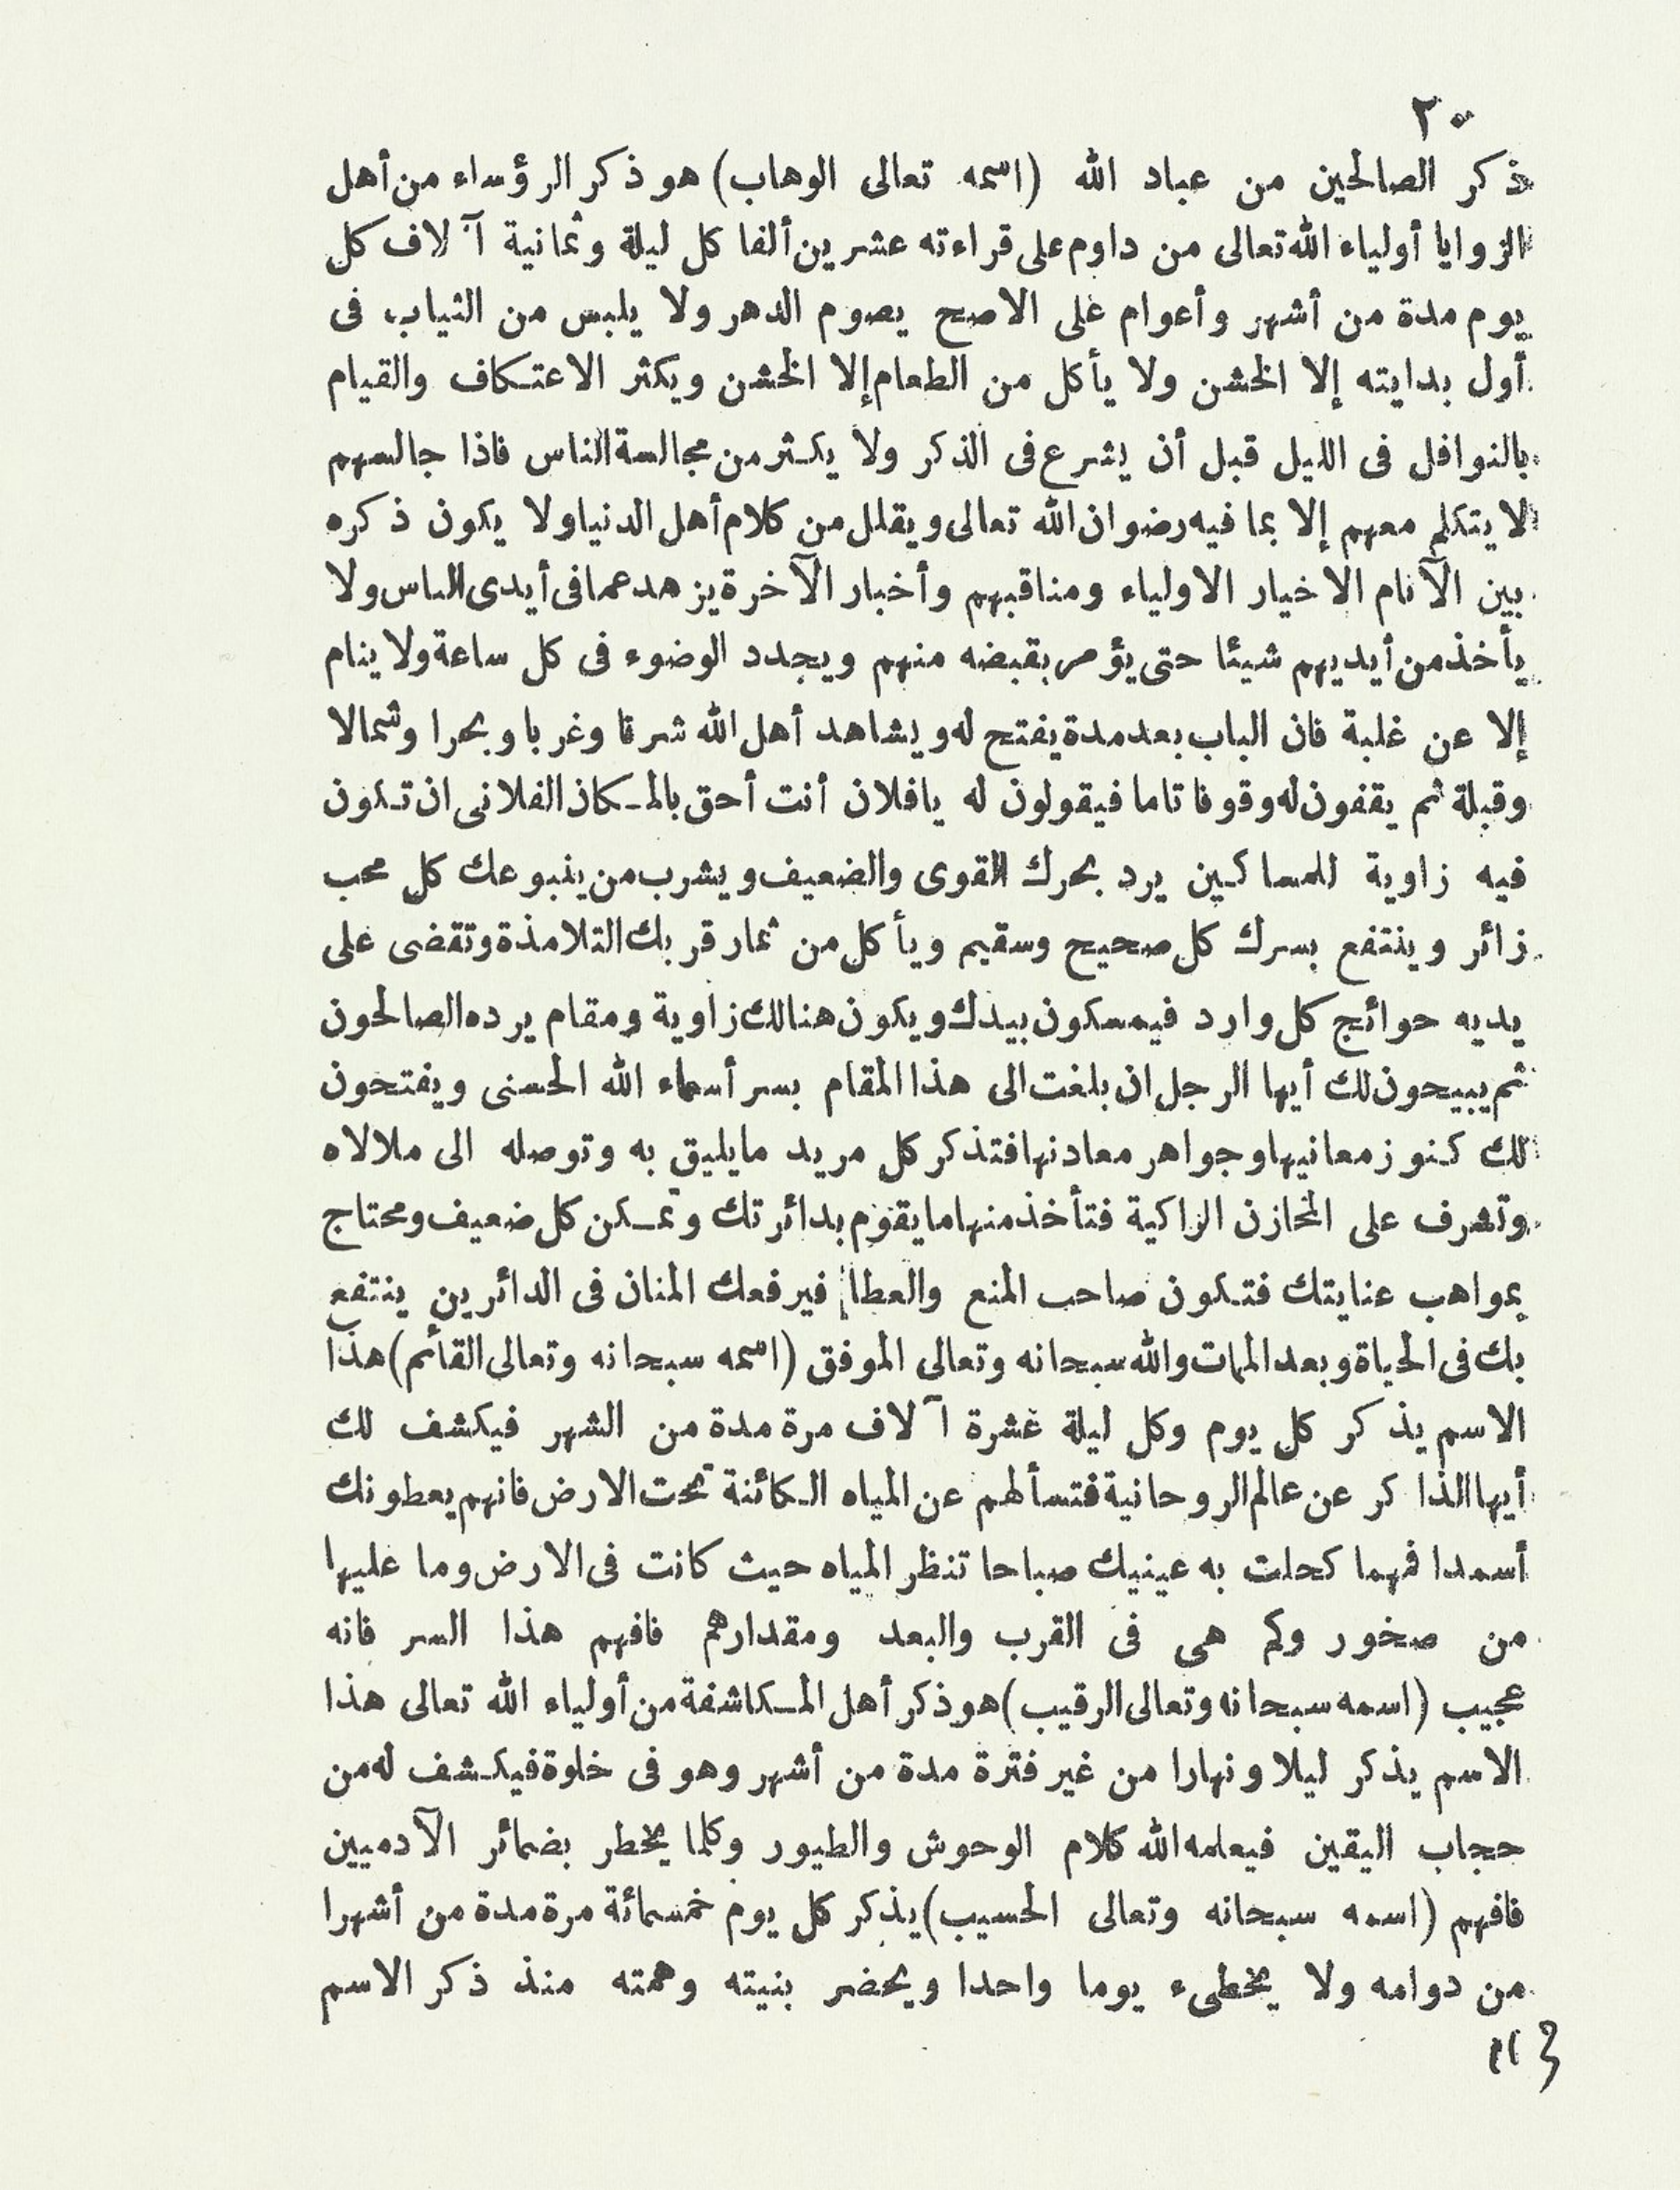 ٢٠
ذكر الصالحين من عباد الله (اسمه تعالى الوهاب) هو ذكر الرؤساء من أهل
الزوايا أولياء الله تعالى من داوم على قراءته عشرين ألفا كل ليلة وثمانية آلاف كل
يوم مدة من أشهر وأعوام على الاصح يصوم الدهر ولا يلبس من الثياب فى
أول بدايته إلا الخشن ولا يأكل من الطعام إلا الخشن ويكثر الاعتكاف والقيام
بالنوافل فى الليل قبل أن يشرع فى الذكر ولا يكثر من مجالسة الناس فاذا جالسهم
لا يتكلم معهم إلا بما فيه رضوان الله تعالى ويقلل من كلام أهل الدنيا ولا يكون ذكره
بين الآنام الا خيار الاولياء ومناقبهم وأخبار الآخرة يزهد عما فى أيدى الناس ولا
يأخذ من أيديهم شيئا حتى يؤمر بقبضه منهم ويجدد الوضوء فى كل ساعة ولا ينام
إلا عن غلبة فان الباب بعد مدة يفتح له ويشاهد أهل الله شرقا وغربا وبحرا وشمالا
وقبلة ثم يقفون له وقوفا تاما فيقولون له يا فلان أنت أحق بالمكان الفلانى ان تكون
فيه زاوية للمساكين يرد بحرك القوى والضعيف ويشرب من ينبوعك كل محب
زائر وينتفع بسرك كل صحيح وسقيم ويأكل من ثمار قربك التلامذة وتقضى على
يديه حوائج كل وارد فيمسكون بيدك ويكون هنالك زاوية ومقام يرده الصالحون
ثم يبيحون لك أيها الرجل ان بلغت الى هذا المقام بسر أسماء الله الحسنى ويفتحون
لك كنوز معانيها وجواهر معادنها فتذكر كل مريد ما يليق به وتوصله الى ملالاه
وتشرف على المخازن الزاكية فتأخذ منها ما يقوم بدائرتك وتمكن كل ضعيف ومحتاج
بمواهب عنايتك فتكون صاحب المنع والعطا فيرفعك المنان فى الدائرين ينتفع
بك فى الحياة وبعد الممات والله سبحانه وتعالى الموفق (اسمه سبحانه وتعالى القائم) هذا
الاسم يذكر كل يوم وكل ليلة عشرة آلاف مرة مدة من الشهر فيكشف لك
أيها الذاكر عن عالم الروحانية فتسألهم عن المياه الكائنة تحت الارض فانهم يعطونك
أسمدا فمهما كحلت به عينيك صباحا تنظر المياه حيث كانت فى الارض وما عليها
من صخور وكم هى فى القرب والبعد ومقدارهم فافهم هذا السر فانه
عجيب (اسمه سبحانه وتعالى الرقيب) هو ذكر أهل المكاشفة من أولياء الله تعالى هذا
الاسم يذكر ليلا ونهارا من غير فترة مدة من أشهر وهو فى خلوة فيكشف له من
حجاب اليقين فيعلمه الله كلام الوحوش والطيور وكلما يخطر بضمائر الآدميين
فافهم (اسمه سبحانه وتعالى الحسيب) يذكر كل يوم خمسمائة مرة مدة من أشهرا
من دوامه ولا يخطىء يوما واحدا ويحضر بنيته وهمته منذ ذكر الاسم